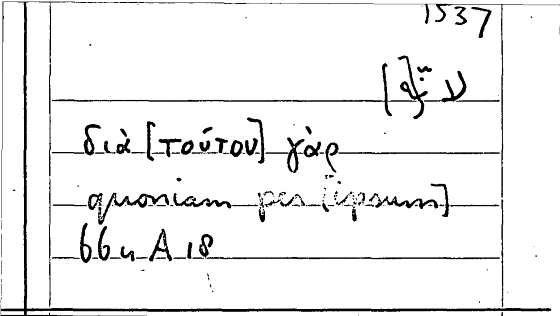 1537
διὰ [τούτου] γὰρ
quoniam per [ipsum]
66 u A 18